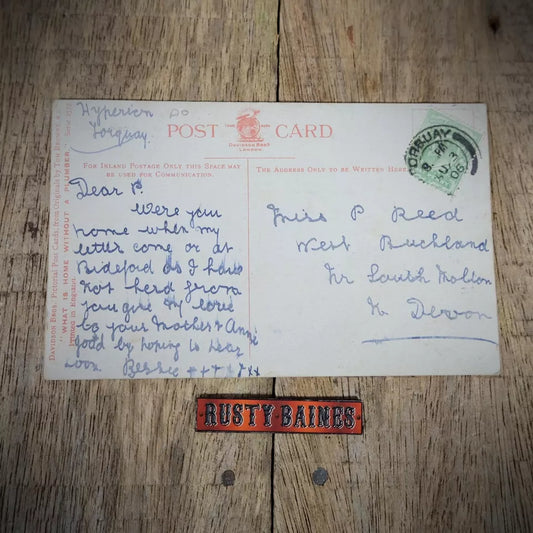 Hyperion
Torquay
POST CARD
DAVIDSON BROS.
LONDON.
FOR INLAND POSTAGE ONLY THIS SPACE MAY
BE USED FOR COMMUNICATION.
THE ADDRESS ONLY TO BE WRITTEN HERE
TORQUAY
8 PM
06
Dear P.
Were you
home when my
letter come or at
Bideford as I have
not herd from
you give my love
to your Mother & Annie
good by hoping to hear
soon Bessie ++++xx
Miss P Reed
West Buckland
Nr South Molton
N Devon
DAVIDSON BROS. Pictorial Post Cards, from Originals by
"WHAT IS HOME WITHOUT A PLUMBER."
Printed in England
RUSTY-BAINES